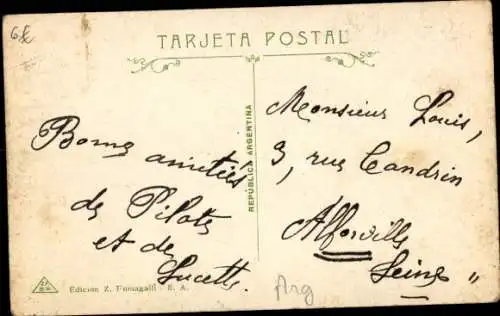 6 €
TARJETA POSTAL
Bonnes amitiés
de Pilots
et de
Lucette.
REPÚBLICA ARGENTINA
Monsieur Louis,
3, rue Candrin
Alforville
Seine "
Edicion Z. Fumagalli - B. A.
Arg